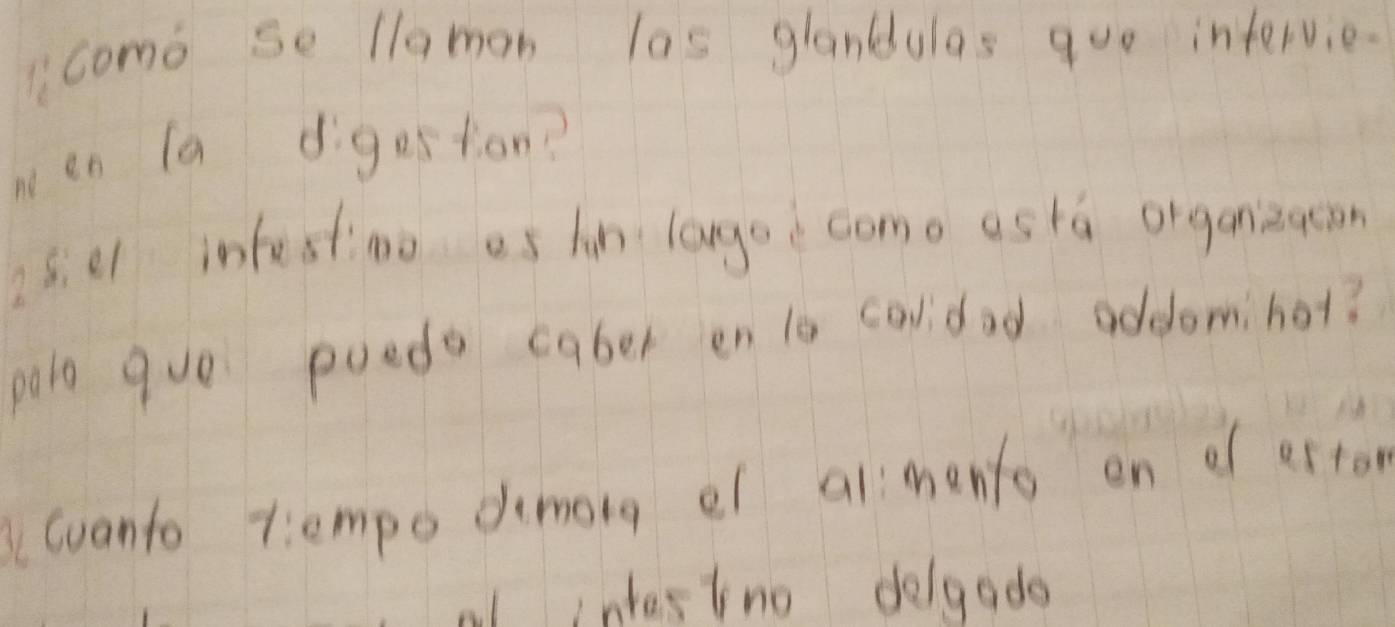 1¿comó se llaman las glandulas que intervie-
ne en la digestion?
2 si el intestino es tan largo ¿ como está organizacion
para que pueda caber en la cavidad addominal?
3¿ cuanto tiempo demora el alimento en el estom
al intestino delgado